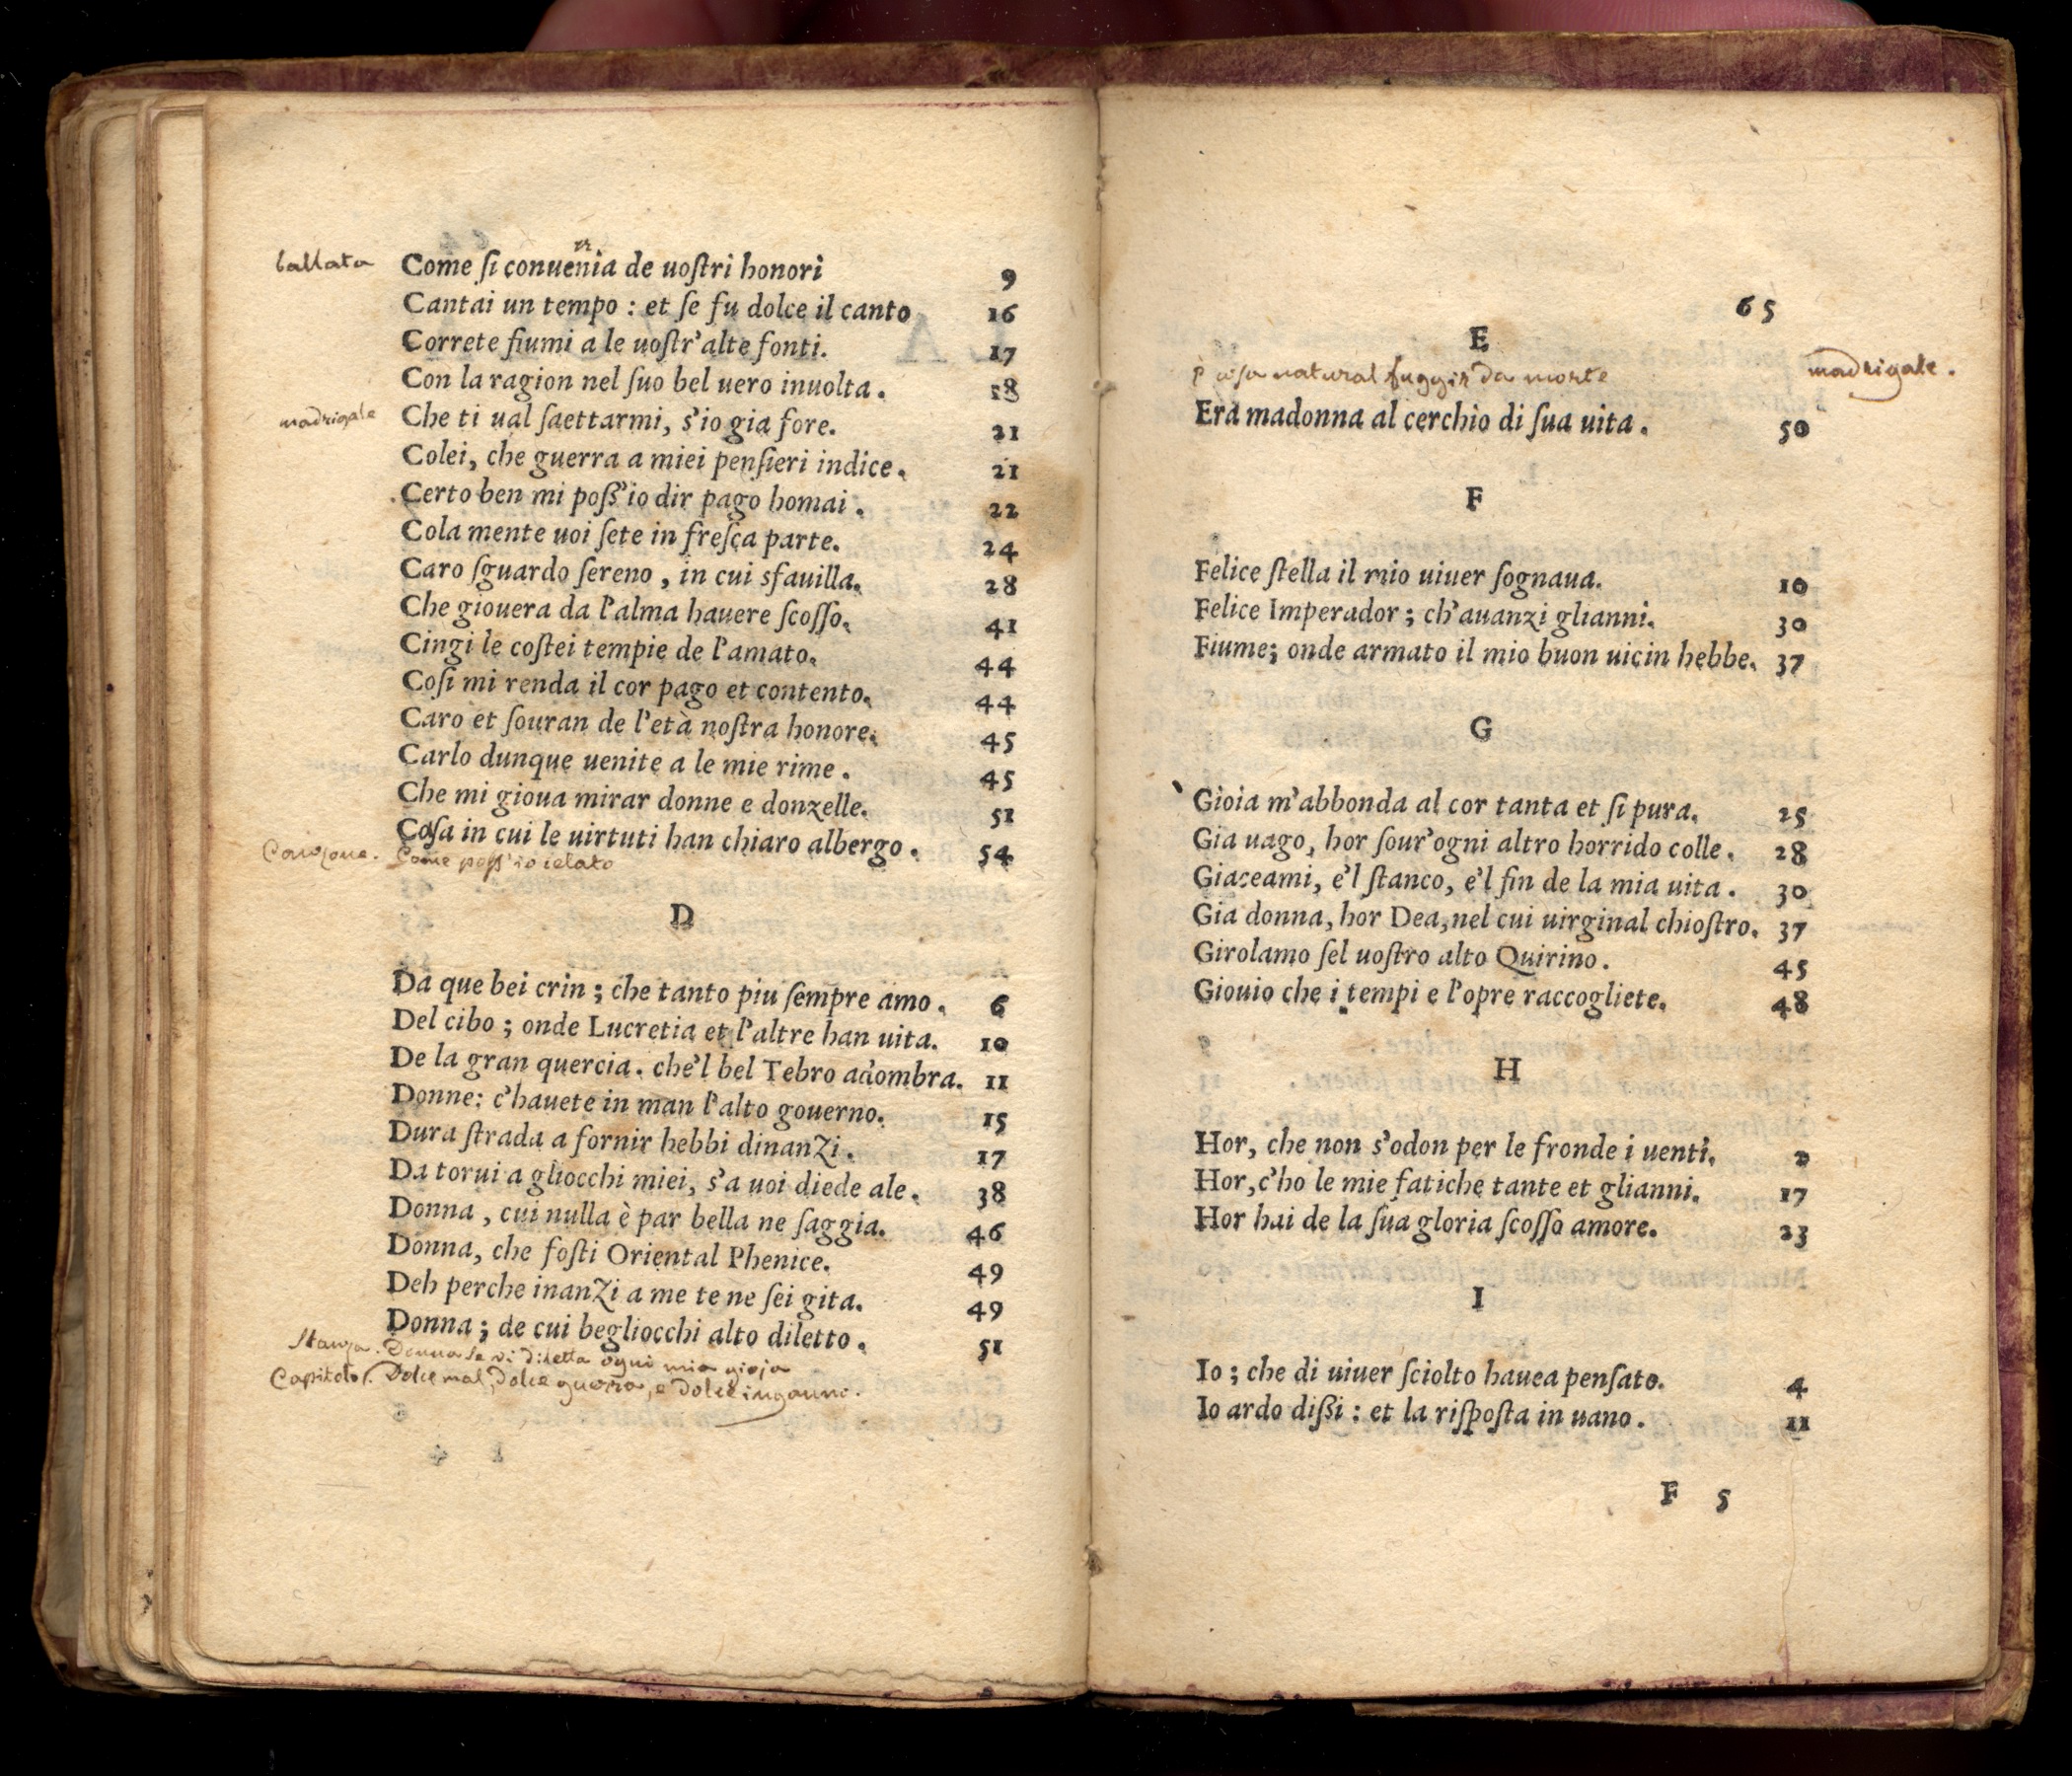 ballata Come ſi conuenia de uoſtri honori 9
Cantai un tempo : et ſe fu dolce il canto 16
Correte fiumi a le uoſtr'alte fonti. 17
Con la ragion nel ſuo bel uero inuolta. 18
madrigale Che ti ual ſaettarmi, s'io gia fore. 21
Colei, che guerra a miei penſieri indice. 21
Certo ben mi poſſ'io dir pago homai. 22
Cola mente uoi ſete in freſca parte. 24
Caro ſguardo ſereno, in cui sfauilla. 28
Che giouera da l'alma hauere ſcoſſo. 41
Cingi le coſtei tempie de l'amato. 44
Coſi mi renda il cor pago et contento. 44
Caro et ſouran de l'età noſtra honore. 45
Carlo dunque uenite a le mie rime. 45
Che mi gioua mirar donne e donzelle. 51
Coſa in cui le uirtuti han chiaro albergo. 54
Canzone. Come poſſ'io celato
D
Da que bei crin ; che tanto piu ſempre amo. 6
Del cibo ; onde Lucretia et l'altre han uita. 10
De la gran quercia. che'l bel Tebro adombra. 11
Donne: c'hauete in man l'alto gouerno. 15
Dura ſtrada a fornir hebbi dinanzi. 17
Da torui a gliocchi miei, s'a uoi diede ale. 38
Donna, cui nulla è par bella ne ſaggia. 46
Donna, che foſti Oriental Phenice. 49
Deh perche inanzi a me te ne ſei gita. 49
Donna ; de cui begliocchi alto diletto. 51
Stanza. Donna se vi diletta ogni mia gioja
Capitolo. Dolce mal, dolce guerra, e dolce inganno.
65
E
È cosa natural fuggir da morte madrigale.
Era madonna al cerchio di ſua uita. 50
F
Felice ſtella il mio uiuer ſognaua. 10
Felice Imperador ; ch'auanzi glianni. 30
Fiume; onde armato il mio buon uicin hebbe. 37
G
Gioia m'abbonda al cor tanta et ſi pura. 25
Gia uago, hor ſour'ogni altro horrido colle. 28
Giaceami, e'l ſtanco, e'l fin de la mia uita. 30
Gia donna, hor Dea, nel cui uirginal chioſtro. 37
Girolamo ſel uoſtro alto Quirino. 45
Giouio che i tempi e l'opre raccogliete. 48
H
Hor, che non s'odon per le fronde i uenti. 2
Hor, c'ho le mie fatiche tante et glianni. 17
Hor hai de la ſua gloria ſcoſſo amore. 23
I
Io ; che di uiuer ſciolto hauea penſato. 4
Io ardo diſſi : et la riſpoſta in uano. 11
F 5